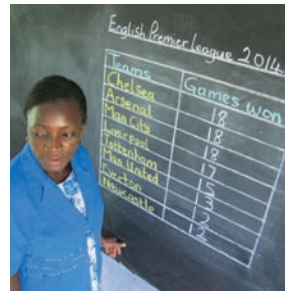 English Premier League 2014
Teams Games won
Chelsea 18
Arsenal 18
Man City 18
Liverpool 17
Tottenham 15
Man United 13
Everton 12
Newcastle 12